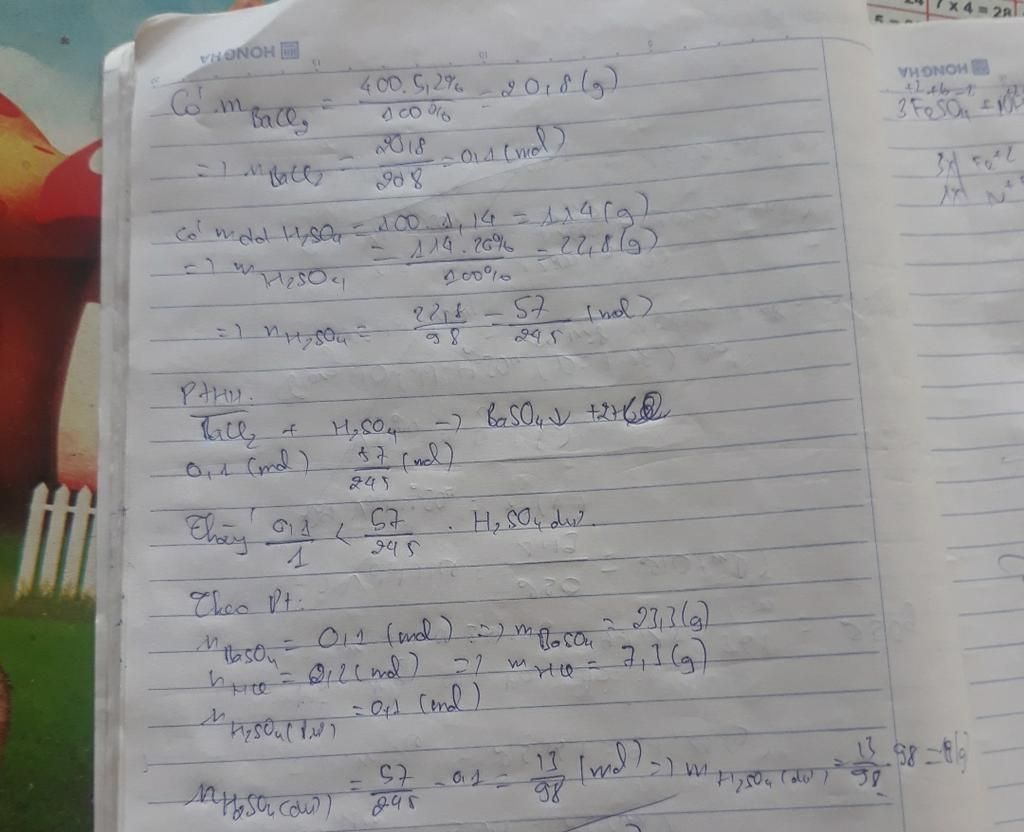 7 x 4 = 28
HONGHA
HONGHA
Có m BaCl2 = 400.5,2% / 100% = 20,8 (g)
=> nBaCl2 = 20,8 / 208 = 0,1 (mol)
Có mdd H2SO4 = 100 . 1,14 = 114 (g)
=> m H2SO4 = 114.20% / 100% = 22,8 (g)
=> n H2SO4 = 22,8 / 98 = 57 / 245 (mol)
PTHH:
BaCl2 + H2SO4 -> BaSO4↓ + 2HCl
0,1 (mol) 57 / 245 (mol)
Thấy 0,1 / 1 < 57 / 245 . H2SO4 dư.
Theo Pt:
nBaSO4 = 0,1 (mol) => mBaSO4 = 23,3 (g)
nHCl = 0,2 (mol) => mHCl = 7,3 (g)
nH2SO4(P.Ư) = 0,1 (mol)
nH2SO4(dư) = 57 / 245 - 0,1 = 13 / 98 (mol) => m H2SO4(dư) = 13 / 98 . 98 = (g)
3FeSO4 +
3x Fe+2
1x N+